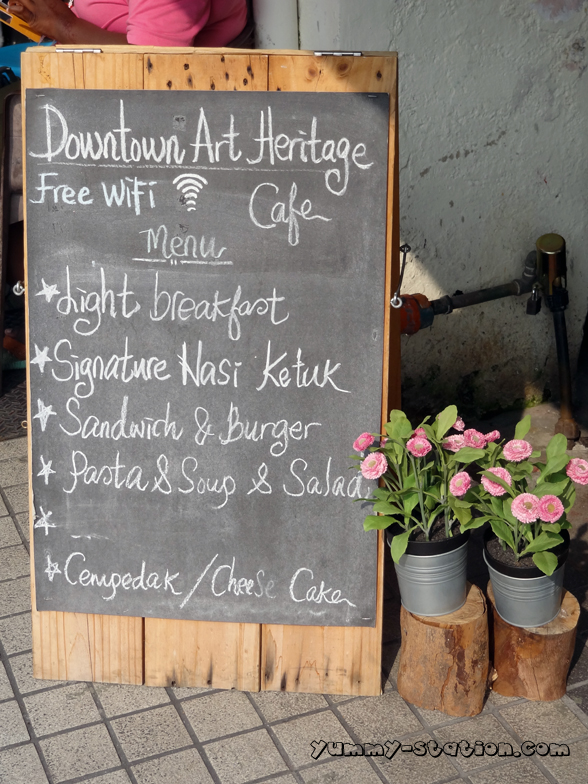 Downtown Art Heritage
Free WiFi Cafe
Menu
Light breakfast
Signature Nasi Ketuk
Sandwich & Burger
Pasta & Soup & Salad
Cempedak / Cheese Cake
yummy-station.com